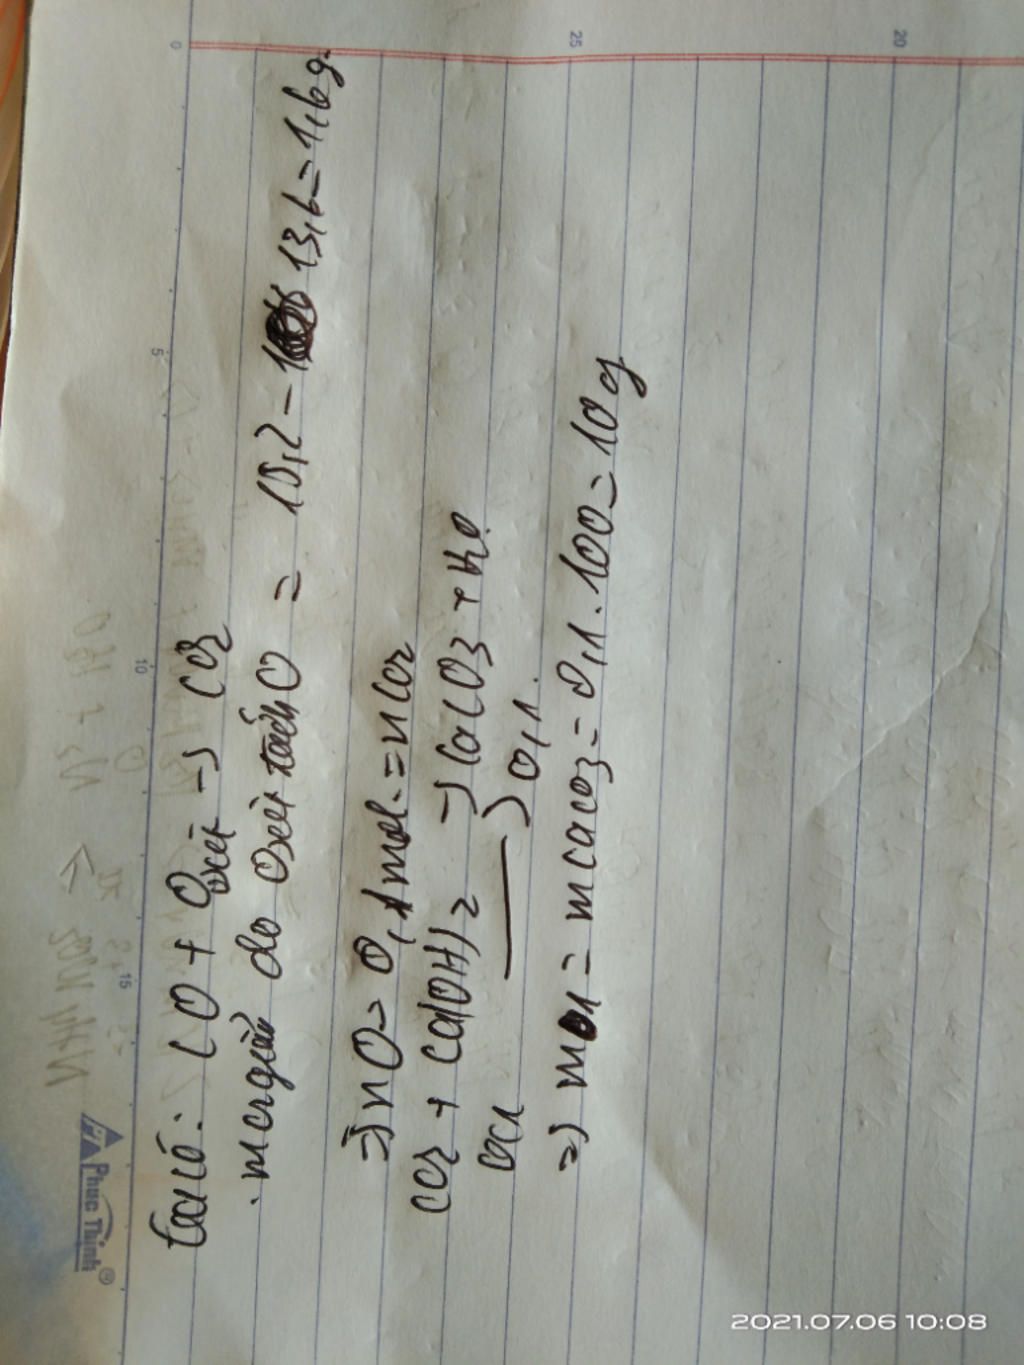 Phuc Thinh®
ta có: CO + O oxit → CO2
. m cr giảm do oxit tách O = 15,2 - 13,6 = 1,6g.
=> nO = 0,1 mol. = nCO2
CO2 + Ca(OH)2 → CaCO3 + H2O
0,1 → 0,1.
=> m = mCaCO3 = 0,1.100 = 10g
0
5
10
15
20
25
2021.07.06 10:08